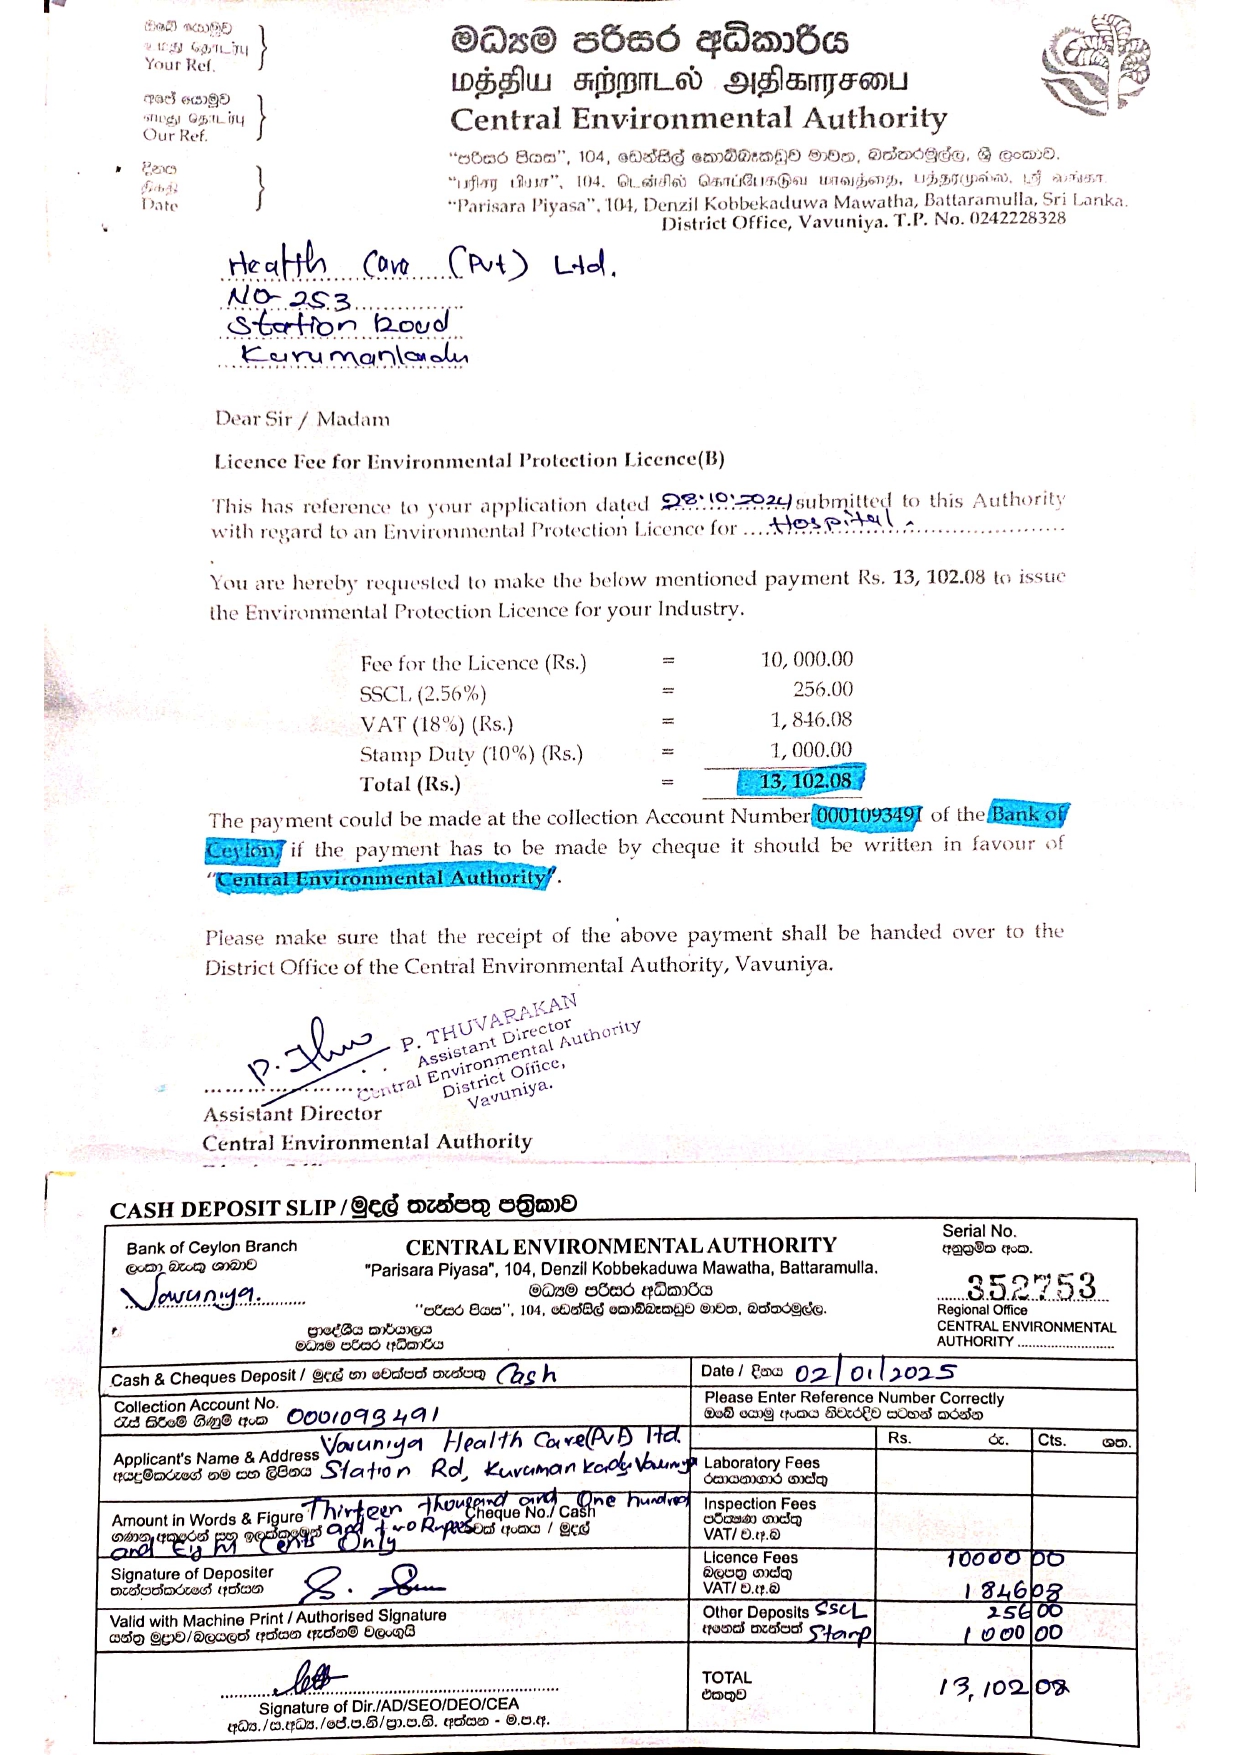 ඔබේ යොමුව
உமது தொடர்பு
Your Ref.
අපේ යොමුව
எமது தொடர்பு
Our Ref.
දිනය
திகதி
Date
මධ්‍යම පරිසර අධිකාරිය
மத்திய சுற்றாடல் அதிகாரசபை
Central Environmental Authority
"පරිසර පියස", 104, ඩෙන්සිල් කොබ්බෑකඩුව මාවත, බත්තරමුල්ල, ශ්‍රී ලංකාව.
"பரிசர பியச", 104, டென்சில் கொப்பேகடுவ மாவத்தை, பத்தரமுல்ல, ஸ்ரீ லங்கா.
"Parisara Piyasa", 104, Denzil Kobbekaduwa Mawatha, Battaramulla, Sri Lanka.
District Office, Vavuniya. T.P. No. 0242228328
Health Care (Pvt) Ltd.
NO-253
Station Road
Kurumankadu
Dear Sir / Madam
Licence Fee for Environmental Protection Licence(B)
This has reference to your application dated 28.10.2024 submitted to this Authority
with regard to an Environmental Protection Licence for ....Hospital.
You are hereby requested to make the below mentioned payment Rs. 13, 102.08 to issue
the Environmental Protection Licence for your Industry.
Fee for the Licence (Rs.) = 10, 000.00
SSCL (2.56%) = 256.00
VAT (18%) (Rs.) = 1, 846.08
Stamp Duty (10%) (Rs.) = 1, 000.00
Total (Rs.) = 13, 102.08
The payment could be made at the collection Account Number 0001093491 of the Bank of
Ceylon, if the payment has to be made by cheque it should be written in favour of
"Central Environmental Authority".
Please make sure that the receipt of the above payment shall be handed over to the
District Office of the Central Environmental Authority, Vavuniya.
P. THUVARAKAN
Assistant Director
Central Environmental Authority
District Office,
Vavuniya.
Assistant Director
Central Environmental Authority
CASH DEPOSIT SLIP / මුදල් තැන්පතු පත්‍රිකාව
Bank of Ceylon Branch
ලංකා බැංකු ශාඛාව
Vavuniya.
CENTRAL ENVIRONMENTAL AUTHORITY
"Parisara Piyasa", 104, Denzil Kobbekaduwa Mawatha, Battaramulla.
මධ්‍යම පරිසර අධිකාරිය
"පරිසර පියස", 104, ඩෙන්සිල් කොබ්බෑකඩුව මාවත, බත්තරමුල්ල.
ප්‍රාදේශීය කාර්යාලය
මධ්‍යම පරිසර අධිකාරිය
Serial No.
අනුක්‍රමික අංක.
352753
Regional Office
CENTRAL ENVIRONMENTAL
AUTHORITY
Cash & Cheques Deposit / මුදල් හා චෙක්පත් තැන්පතු Cash
Date / දිනය 02/01/2025
Collection Account No.
රැස් කිරීමේ ගිණුම් අංක 0001093491
Please Enter Reference Number Correctly
ඔබේ යොමු අංකය නිවැරදිව සටහන් කරන්න
Rs. රු. Cts. ශත.
Applicant's Name & Address Vavuniya Health Care (Pvt) ltd.
අයදුම්කරුගේ නම සහ ලිපිනය Station Rd, Kurumankadu Vavuniya
Laboratory Fees
රසායනාගාර ගාස්තු
Amount in Words & Figure Thirteen thousand and One hundred
Cheque No./ Cash
ගණන අකුරෙන් සහ ඉලක්කමෙන් and two Rupees චෙක් අංකය / මුදල්
and Eight Cents Only
Inspection Fees
පරීක්ෂණ ගාස්තු
VAT/ ව.අ.බ
Signature of Depositer
තැන්පත්කරුගේ අත්සන
Licence Fees 10000 00
බලපත්‍ර ගාස්තු
VAT/ ව.අ.බ 1846 08
Valid with Machine Print / Authorised Signature
යන්ත්‍ර මුද්‍රාව/බලයලත් අත්සන ඇත්නම් වලංගුයි
Other Deposits SSCL 256 00
අනෙක් තැන්පත් Stamp 1000 00
Signature of Dir./AD/SEO/DEO/CEA
අධ්‍ය./ස.අධ්‍ය./ජේ.ප.නි/ප්‍රා.ප.නි. අත්සන - ම.ප.අ.
TOTAL
එකතුව
13,102 08